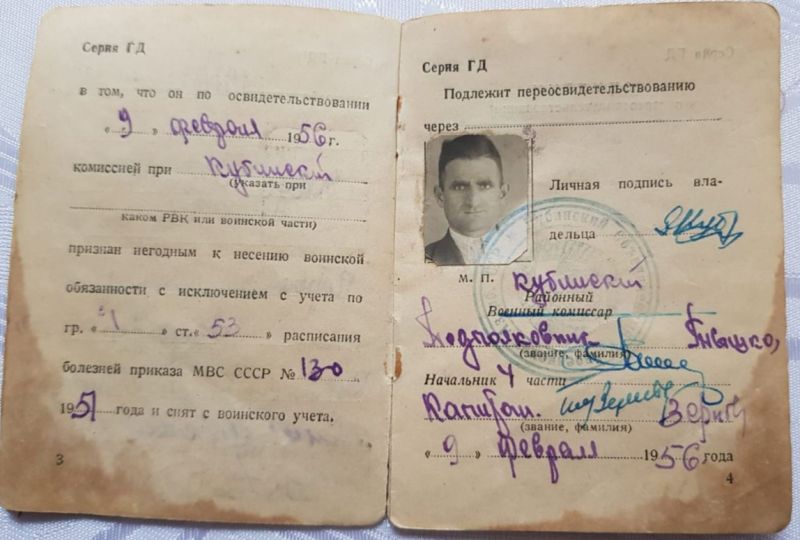 Серия ГД
в том, что он по освидетельствовании
« 9 » февраля 1956 г.
комиссией при Кубинском
(указать при
каком РВК или воинской части)
признан негодным к несению воинской
обязанности с исключением с учета по
гр. « 1 » ст. « 53 » расписания
болезней приказа МВС СССР № 130
1951 года и снят с воинского учета.
3
Серия ГД
Подлежит переосвидетельствованию
через
Личная подпись вла-
дельца
М. П. Кубинский
Районный
Военный комиссар
Подполковник
(звание, фамилия)
Начальник 4 части
Капитан
(звание, фамилия)
« 9 » февраля 1956 года
4